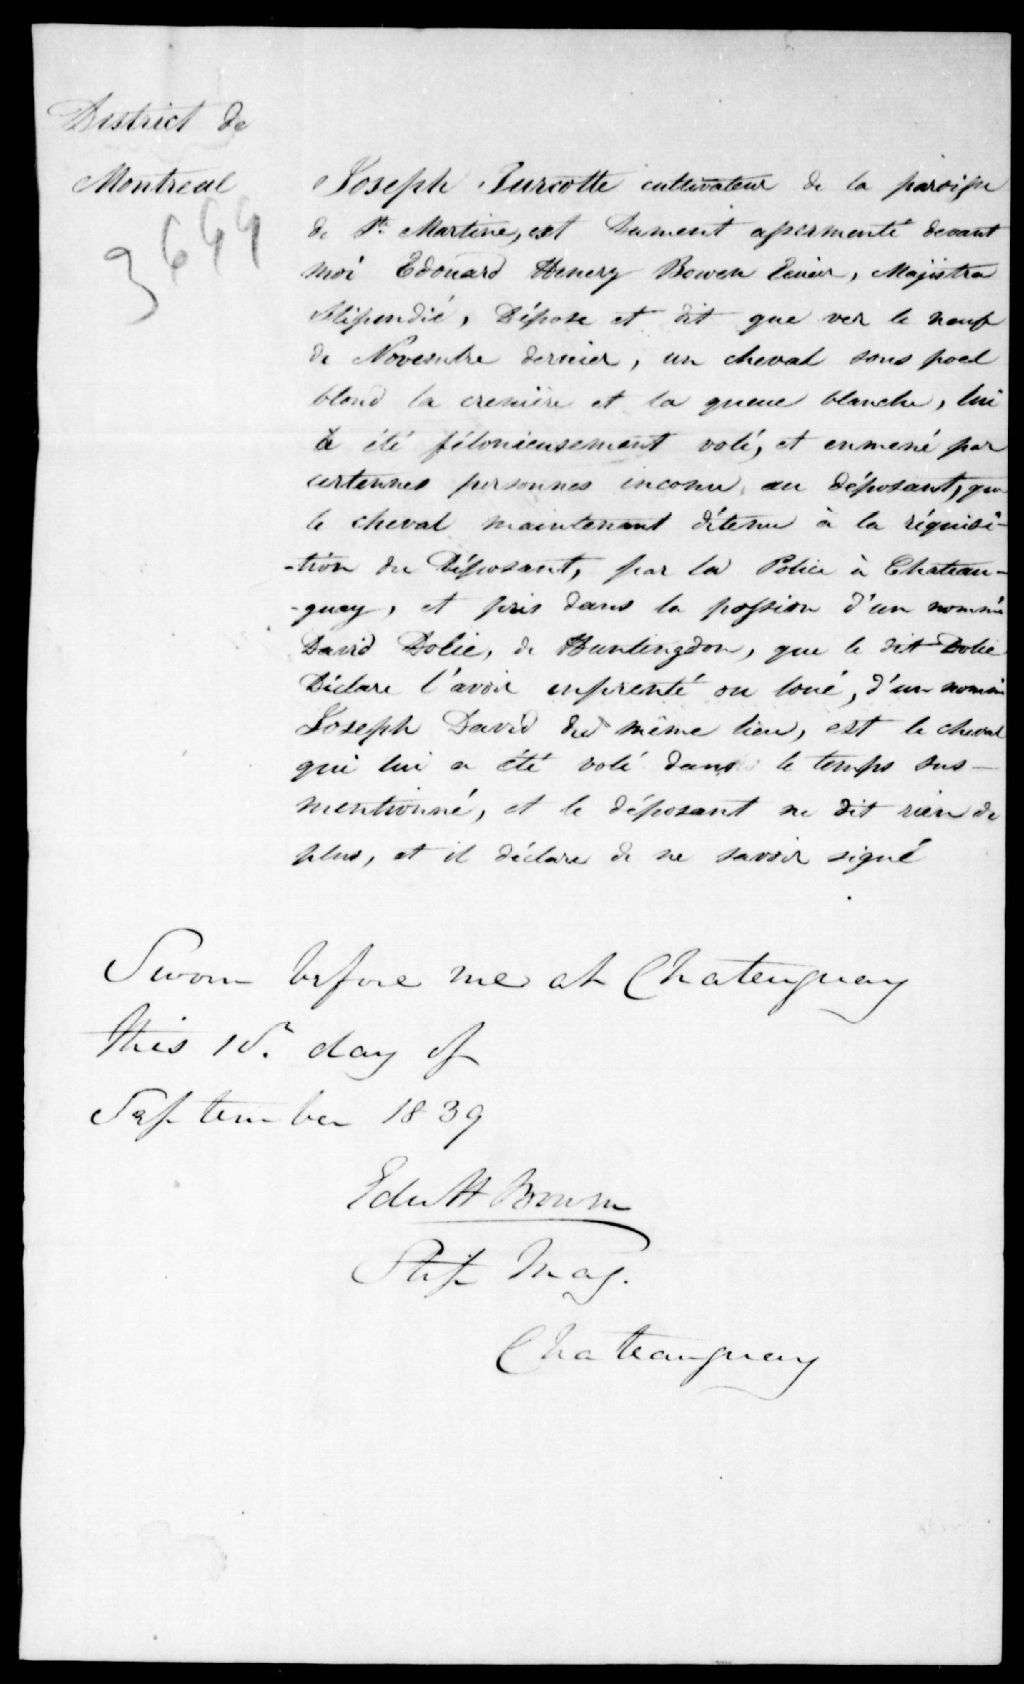 District de
Montreal
3644
Joseph Turcotte cultivateur de la paroisse
de Ste Martine, est Dument assermenté devant
moi Edouard Henery Bowen Ecuier, Majistra
Stipendié, Dépose et dit que ver le neuf
de Novembre dernier, un cheval sous poel
blond la crenière et la queue blanche, lui
a été félonieusement volé, et enmené par
certennes personnes inconu au déposant, que
le cheval maintenant détenu à la réquisi-
-tion du Déposant, par la Police à Chateau-
-guay, et pris dans la possion d'un nommé
David Dolie, de Huntingdon, que le dit Dolie
Déclare l'avoir enprenté ou loué, d'un nommé
Joseph David du même lieu, est le cheval
qui lui a été volé dans le temps sus-
mentionné, et le déposant ne dit rien de
plus, et il déclare de ne savoir signé
Sworn before me at Chateuguay
this day of
September 1839
Edw H Bowen
Stip Mag.
Chateauguay